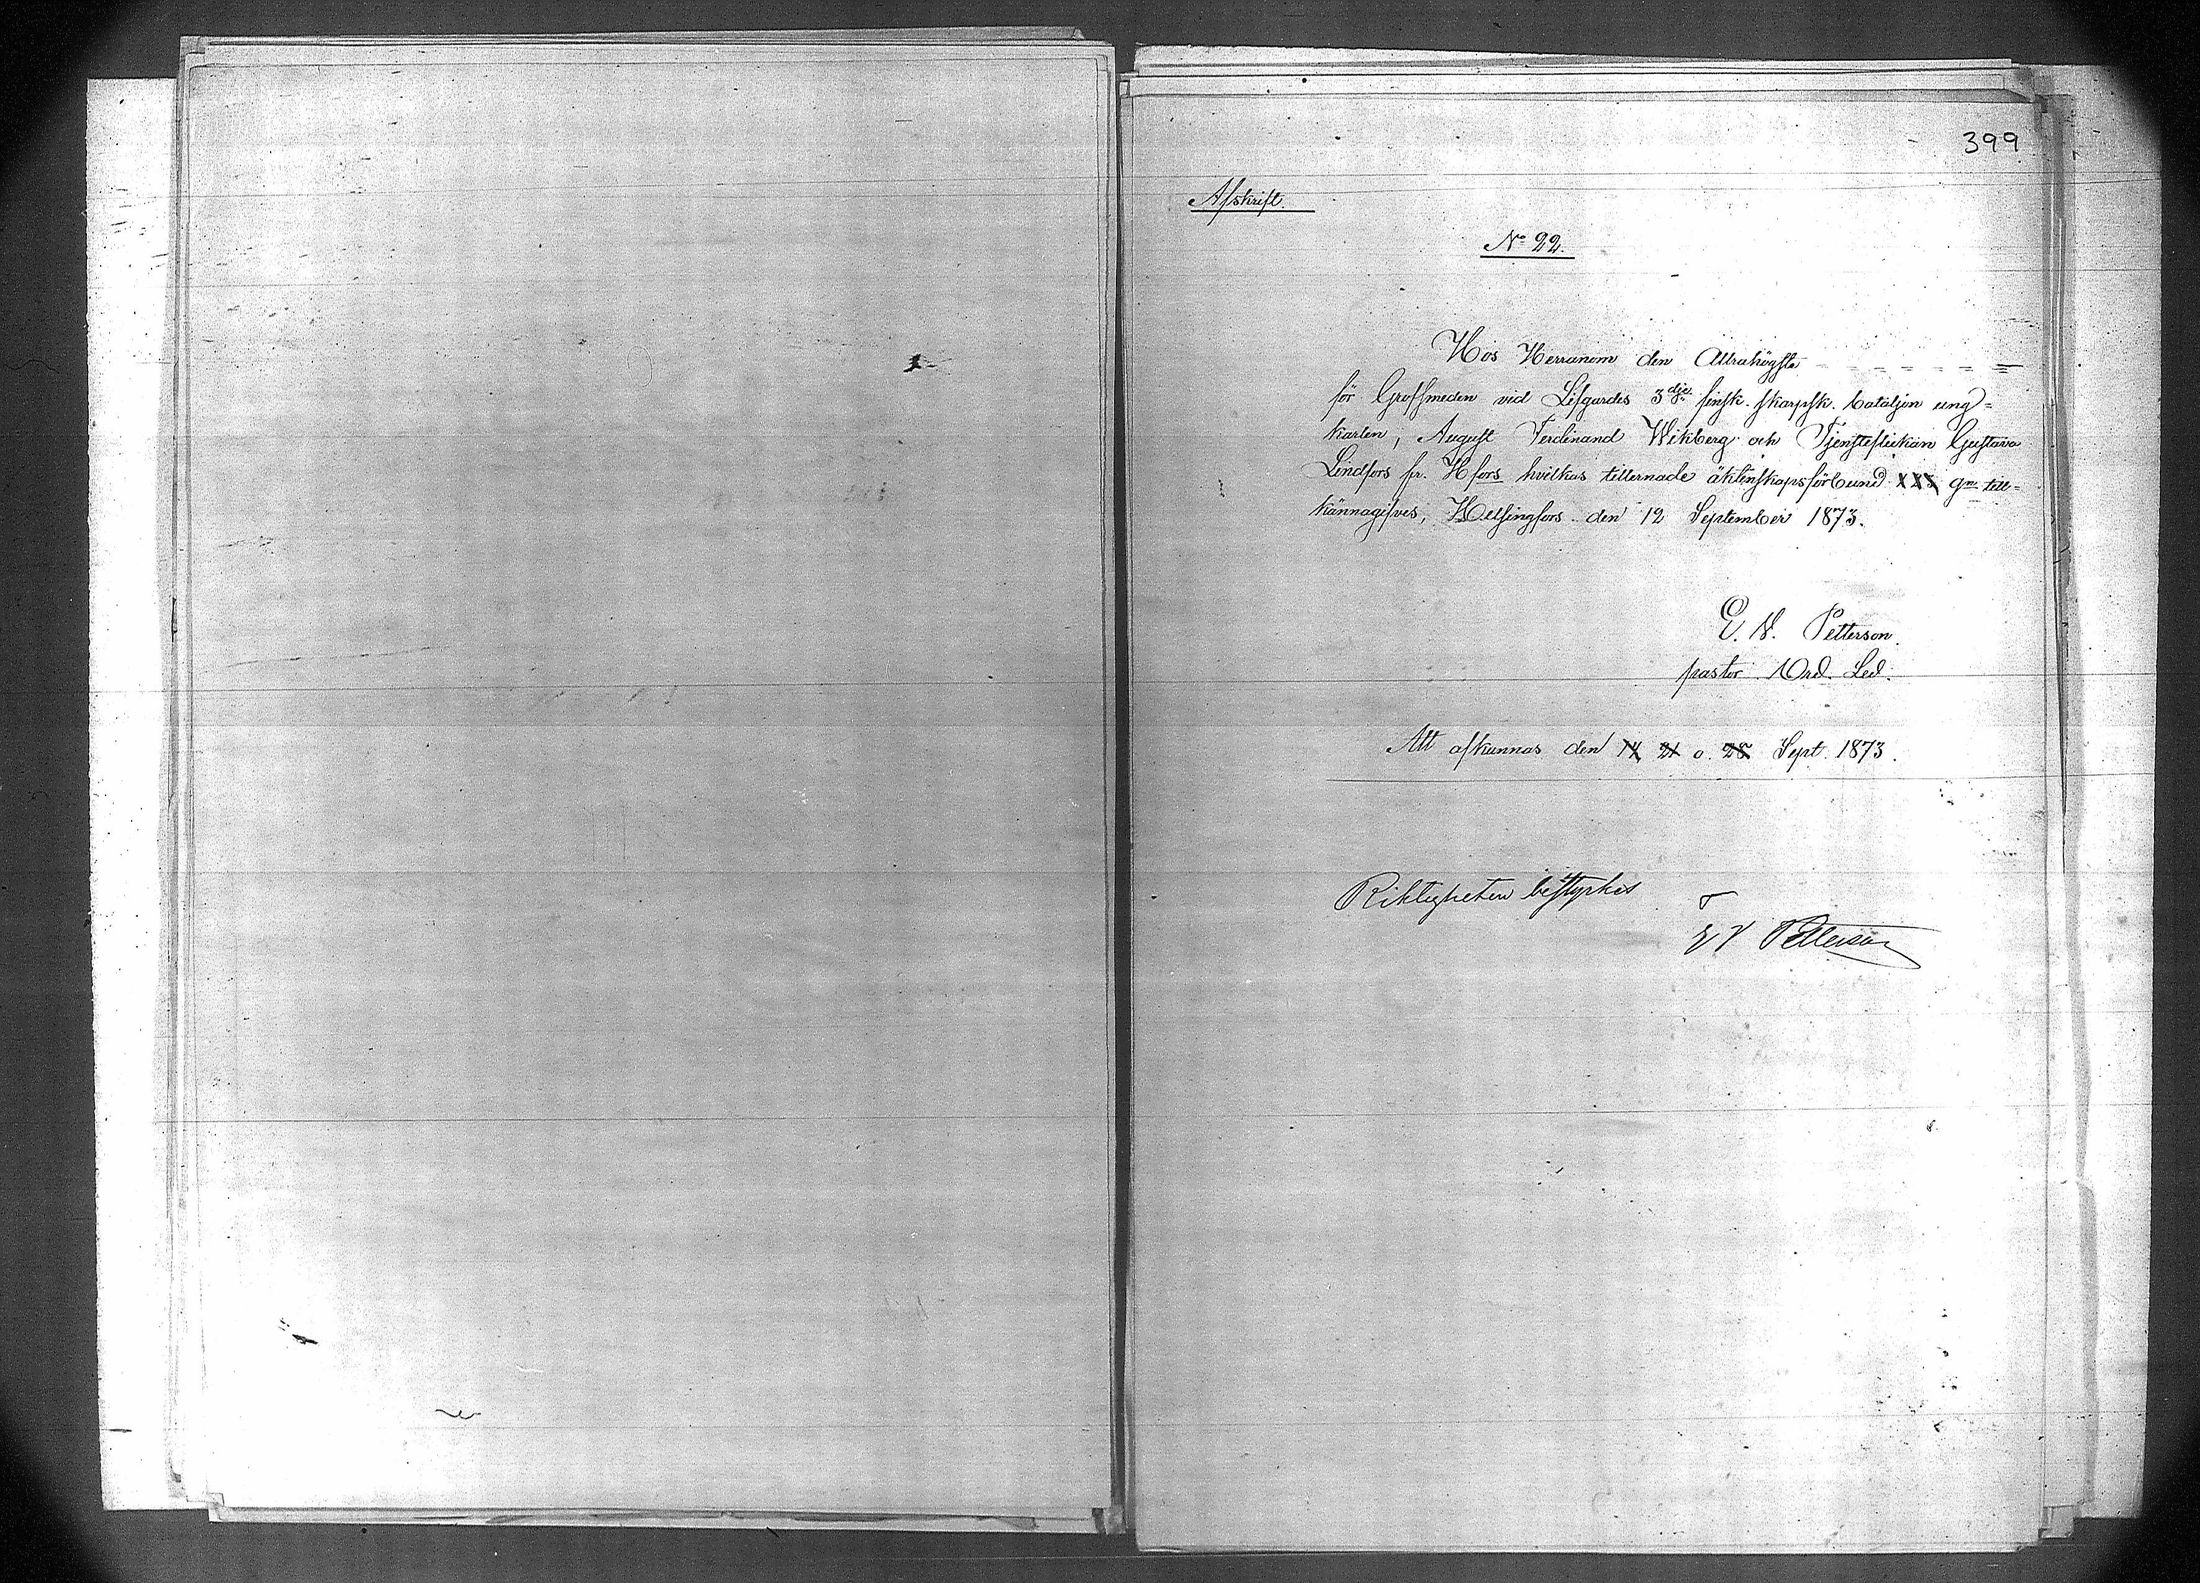 399
Afskrift.
No 22.
Hos Herranom den Allrahögste
för Grofsmeden vid Lifgardes 3dje finsk. skarpsk. bataljon ung-
karlen, August Ferdinand Wikberg och Tjensteflickan Gustava
Lindfors fr. Hfors hvilkas tillernade äktenskapsförbund XXX gm till-
kännagifves, Helsingfors den 12 September 1873.
E. V. Petterson.
pastor. Ord. Led.
Att afkunnas den 14 21 o. 28 Sept. 1873.
Riktigheten bestyrkes
E V Petterson